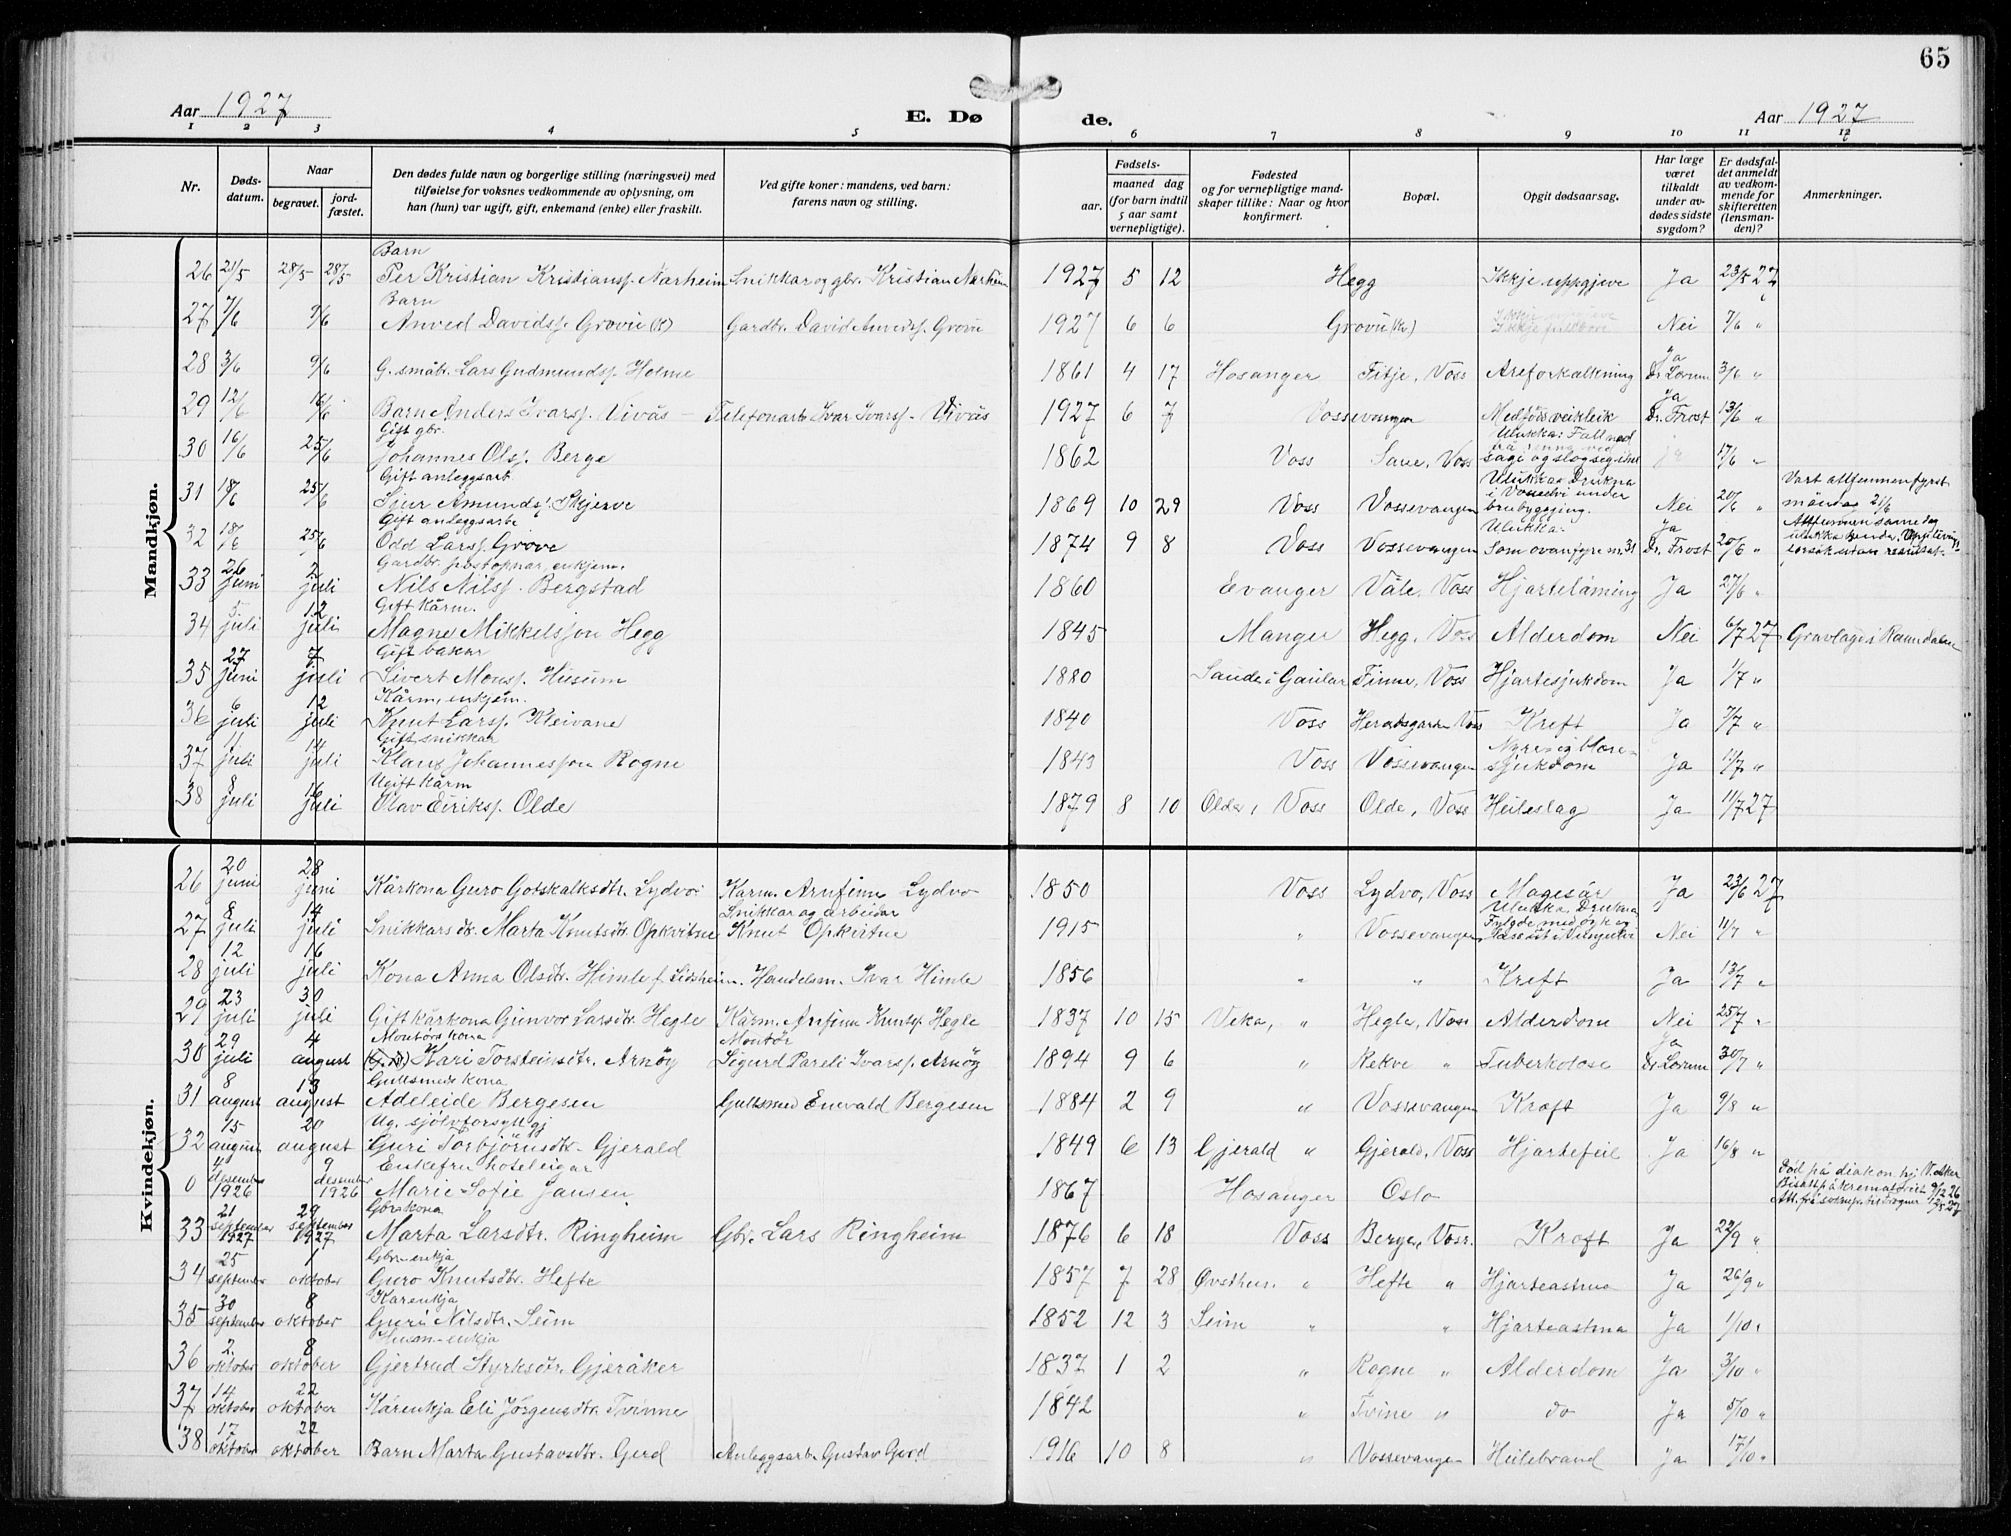 65
Aar 1927
E. Dø
de.
Aar 1927
1 2 3 4 5 6 7 8 9 10 11 12
Nr.
Døds-
datum.
Naar
begravet.
jord-
fæstet.
Den dødes fulde navn og borgerlige stilling (næringsvei) med
tilføielse for voksnes vedkommende av oplysning, om
han (hun) var ugift, gift, enkemand (enke) eller fraskilt.
Ved gifte koner: mandens, ved barn:
farens navn og stilling.
Fødsels-
aar.
maaned dag
(for barn indtil
5 aar samt
vernepligtige).
Fødested
og for vernepligtige mand-
skaper tillike: Naar og hvor
konfirmert.
Bopæl.
Opgit dødsaarsag.
Har læge
været
tilkaldt
under av-
dødes sidste
sygdom?
Er dødsfal-
det anmeldt
av vedkom-
mende for
skifteretten
(lensman-
den)?
Anmerkninger.
Mandkjøn.
Barn
26 21/5 28/5 28/5 Per Kristian Kristianss. Nærheim Snikkar og gbr. Kristian Nærheim 1927 5 12 Hegg Ikkje uppgjeve Ja 23/5 27
Barn
27 7/6 9/6 Anved Davidss. Grovu (k) Gardbr. David Anvedss. Grovu 1927 6 6 Grovu (k.) Nei 7/6 "
28 3/6 9/6 G. småbr. Lars Gudmundss. Holme 1861 4 17 Hosanger Fitje, Voss Areforkalkning Ja Dr. Lorum 3/6 "
29 12/6 16/6 Barn Anders Ivarss. Vivås – Telefonarb. Ivar Ivarss. Vivås 1927 6 7 Vossevangen Medfødd veikleik Ja Dr. Frost 13/6 "
Gift gbr.
30 16/6 25/6 Johannes Olss. Berge 1862 Voss Saue, Voss Ulukka: Fall ned
sagi og slog seg ihel 17/6 "
Gift anleggsarb.
31 18/6 25/6 Sjur Amunds. Skjerve 1869 10 29 Voss Vossevangen Ulukka: Drukna
i Vosselvi under
brubyggjing. Nei 20/6 " Vart attfunnen fyrst
måndag 21/6
Gift anleggsarb.
32 18/6 25/6 Odd Larss. Grove 1874 9 8 Voss Vossevangen Ulukka:
Som ovanfyre nr. 31 Ja Dr. Frost 20/6 " Attfunnen same dag
ulukka hende.
forsøk utan resultat.
Gardbr. postopnar, enkjem.
33 26 juni 2 juli Nils Nilss. Bergstad 1860 Evanger Våle, Voss Hjartelåming Ja 27/6 "
Gift kårm.
34 5. juli 12 juli Magne Mikkelsson Hegg 1845 Manger Hegg, Voss Alderdom Nei 6/7 27 Gravlagd i Raundalen
Gift bakar
35 27 juni 7 juli Sivert Monss. Husum 1880 Sande i Gaular Finne, Voss Hjartesjukdom Ja 1/7 "
Kårm, enkjem.
36 6 juli 12 juli Knut Larss. Kleivane 1840 Voss Heradsgarden Voss Kreft Ja 7/7 "
Gift snikkar
37 11 juli 14 juli Klaus Johannesson Rogne 1843 Voss Vossevangen Nyre og blære-
sjukdom Ja 11/7 "
Ugift kårm
38 8 juli 16 juli Olav Eirikss. Olde 1879 8 10 Olde, Voss Olde, Voss Heileslag Ja 11/7 27
Kvindekjøn.
26 20 juni 28 juni Kårkona Guro Gotskalksdtr. Lydvo Kårm. Arnfinn Lydvo 1850 Voss Lydvo, Voss Magesår Ja 23/6 27
27 8 juli 14 juli Snikkarsdtr. Marta Knutsdtr. Opkvitne Snikkar og arbeidar
Knut Opkvitne 1915 " Vossevangen Ulukka. Drukna
Nei 11/7 "
28 12 juli 16 juli Kona Anna Olsdtr. Himle f. Lidsheim. Handelsm. Ivar Himle 1856 " " Kreft Ja 13/7 "
29 23 juli 30 juli Gift kårkona Gunvor Larsdtr. Hegle Kårm. Arnfinn Knutss. Hegle 1837 10 15 Veka, " Hegle, Voss Alderdom Nei 25/7 "
Montørskona Montør
30 29 juli 4 august Kari Torsteinsdtr. Arnøy Sigurd Pareli Ivarss. Arnøy 1894 9 6 " Rekve " Tuberkolose Ja Dr. Lorum 30/7 "
Gullsmedskona
31 8 august 13 august Adeleide Bergesen Gullsmed Enevald Bergesen 1884 2 9 " Vossevangen Kræft Ja 9/8 "
Ug. sjølvforsytt gj
32 15 august 20 august Guri Torbjörnsdtr. Gjerald 1849 6 13 Gjerald " Gjerald, Voss Hjartefeil Ja 16/8 "
Enkefru hoteleigar
0 4 desember 1926 9 desember 1926 Marie Sofie Jansen 1867 Hosanger Oslo Død på diakon. hj. V. Aker
Bisatt på krematoriet 9/12 26
Gbrskona
33 21 september 1927 29 september 1927 Marta Larsdtr. Ringheim Gbr. Lars Ringheim 1876 6 18 Voss Berge, Voss. Kræft Ja 22/9 "
Gbr-enkja
34 25 september 1 oktober Guro Knutsdtr. Hefte 1857 7 28 " Hefte " Hjarteastma Ja 26/9 "
Kårenkja
35 30 september 8 oktober Guri Nilsdtr. Seim 1852 12 3 Seim " " Hjarteastma Ja 1/10 "
Husm-enkja
36 2. oktober 8 oktober Gjertrud Styrksdtr. Gjeråker 1837 1 2 " Rogne " Alderdom Ja 3/10 "
37 14 oktober 22 oktober Kårenkja Eli Jørgensdtr. Tvinne 1842 " Tvine " do Ja 5/10 "
38 17 oktober 22 oktober Barn Marta Gustavsdtr. Gerd Anleggsarb. Gustav Gerd 1916 10 8 " Vossevangen Heilebrand Ja 17/10 "